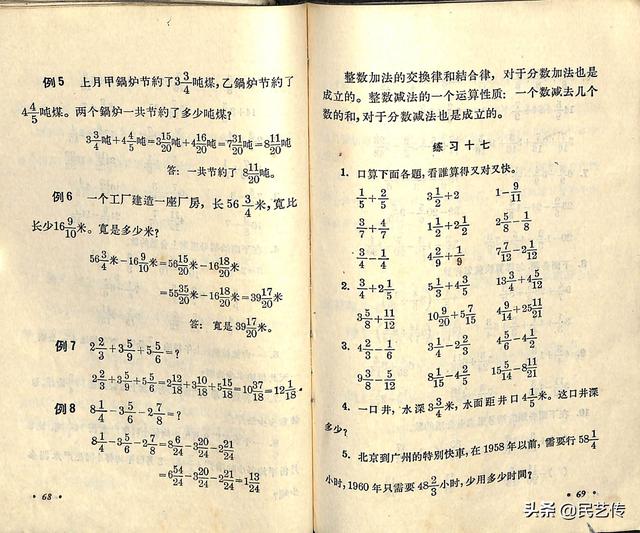 例5 上月甲鍋炉节約了3 3/4吨煤,乙鍋炉节約了
4 4/5吨煤。两个鍋炉一共节約了多少吨煤?
3 3/4吨+4 4/5吨=3 15/20吨+4 16/20吨=7 31/20吨=8 11/20吨
答: 一共节約了 8 11/20吨。
例6 一个工厂建造一座厂房, 长 56 3/4米, 寬比
长少16 9/10米。寬是多少米?
56 3/4米-16 9/10米=56 15/20米-16 18/20米
=55 35/20米-16 18/20米=39 17/20米
答: 寬是 39 17/20米。
例7 2 2/3+3 5/9+5 5/6=?
2 2/3+3 5/9+5 5/6=2 12/18+3 10/18+5 15/18=10 37/18=12 1/18.
例8 8 1/4-3 5/6-2 7/8=?
8 1/4-3 5/6-2 7/8=8 6/24-3 20/24-2 21/24
=6 54/24-3 20/24-2 21/24=1 13/24
· 68 ·
整数加法的交换律和結合律, 对于分数加法也是
成立的。整数减法的一个运算性质: 一个数减去几个
数的和, 对于分数减法也是成立的。
练习十七
1. 口算下面各題, 看誰算得又对又快。
1/5+2/5 3 1/2+2 1-9/11
3/7+4/7 1 1/2+2 1/2 2 5/8-1/8
3/4-1/4 4 2/9+1/9 7 7/12-2 1/12
2. 3/4+2 1/5 5 1/3+4 3/5 13 3/4+4 5/12
3 5/8+11/12 10 9/20+5 7/15 4 9/14+25 11/21
3. 4 2/3-1/6 3 1/4-2 2/3 4 5/6-4 1/2
9 3/8-5/12 8 1/15-4 2/5 15 5/14-8 11/21
4. 一口井, 水深 3 3/4米, 水面距井口 4 1/5米。这口井深
多少?
5. 北京到广州的特别快車, 在 1958 年以前, 需要行 58 1/4
小时, 1960 年只需要 48 2/3小时, 少用多少时间?
· 69 ·
头条 @民艺传